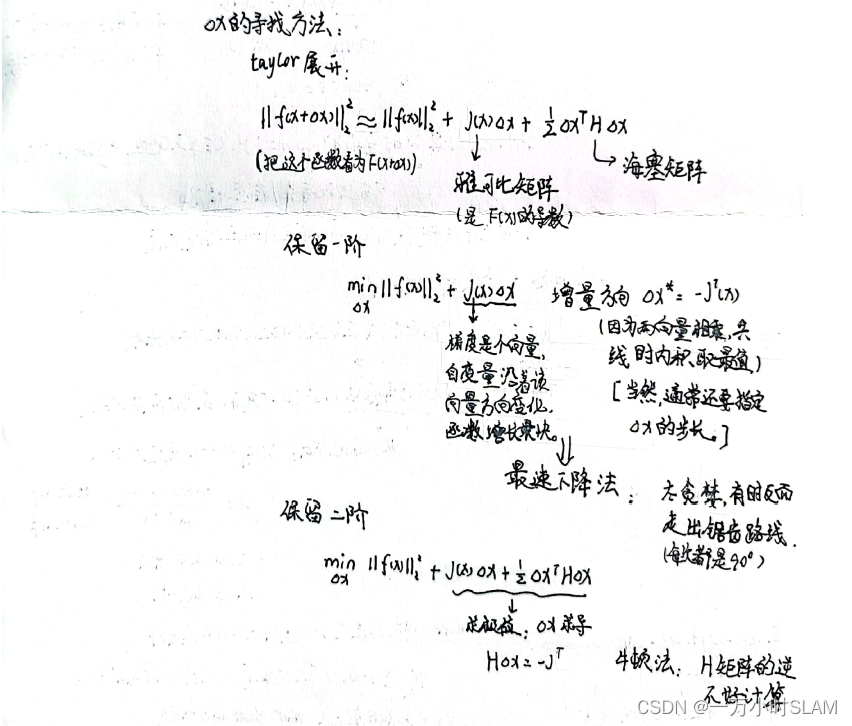 Δx的寻找方法：
taylor展开：
||f(x+Δx)||₂² ≈ ||f(x)||₂² + J(x)Δx + ½Δxᵀ H Δx
(把这个函数看为F(x+Δx))
雅可比矩阵
(是F(x)的导数)
海塞矩阵
保留一阶
min ||f(x)||₂² + J(x)Δx
Δx
梯度是个向量，
自变量沿着该
向量方向变化，
函数增长最快。
增量方向 Δx* = -Jᵀ(x)
(因为两向量相乘，共
线时内积取最值)
[当然，通常还要指定
Δx的步长。]
最速下降法：
太贪婪，有时反而
走出锯齿路线．
(每次都是90°)
保留二阶
min ||f(x)||₂² + J(x)Δx + ½ΔxᵀHΔx
Δx
求极值：Δx求导
HΔx = -Jᵀ
牛顿法：H矩阵的逆
不好计算
CSDN @一万小时SLAM